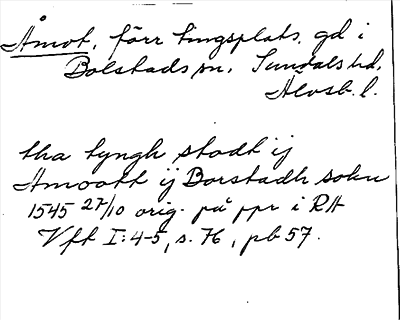 Åmot, förr tingsplats, gd i
Bolstads sn, Sundals hd,
Älvsb. l.
tha tyngh stodt ij
Amoott ij Borstadh sokn
1545 27/10 orig. på ppr i RA
Vff I:4-5, s. 76, pb 57.